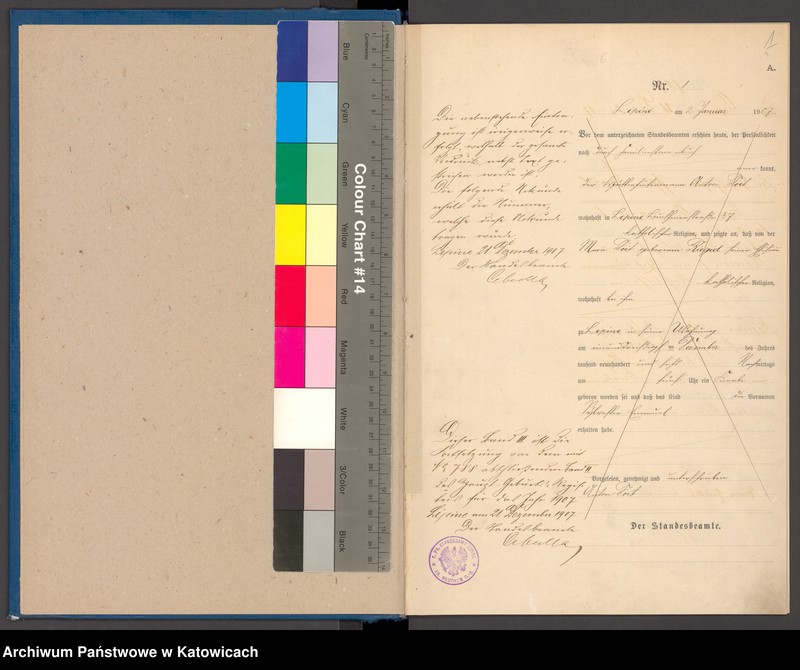 Blue
Cyan
Green
Yellow
Red
Magenta
White
3/Color
Black
Colour Chart #14
Inches
Centimetres
1
A.
Nr. 1
Lipine am 2 Januar 1907
Vor dem unterzeichneten Standesbeamten erschien heute, der Persönlichkeit
nach
kannt,
der Anton
wohnhaft in Lipine 37
katholischer Religion, und zeigte an, daß von der
Maria geborenen seiner Ehefrau
katholischer Religion,
wohnhaft bei ihm
zu Lipine in seiner Wohnung
am Dezember des Jahres
tausend neunhundert und sechs Nachmittags
um fünf Uhr ein Knabe
geboren worden sei und daß das Kind die Vornamen
Sylvester Emanuel
erhalten habe.
Vorgelesen, genehmigt und unterschrieben
Anton
Der Standesbeamte.
Die nebenstehende Eintra-
gung ist
folgt, weshalb der gesamte
Vordruck nebst Text ge-
strichen worden ist.
Die folgende Urkunde
erhält die Nummer,
welche diese Urkunde
tragen würde.
Lipine 21 Dezember 1907
Der Standesbeamte
Cebulla
Dieser Band III ist die
Fortsetzung von dem mit
№ 718 abschließenden Band II
des Haupt Geburts-Regis-
ters für das Jahr 1907.
Lipine am 21 Dezember 1907
Der Standesbeamte
Cebulla
Archiwum Państwowe w Katowicach